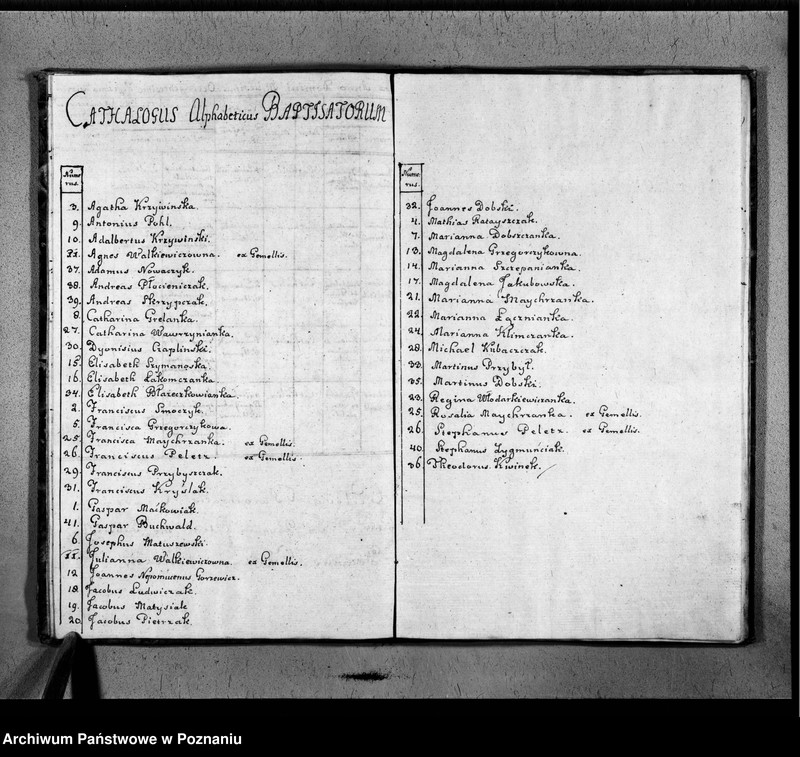 CATHALOGUS Alphabeticus BAPTISATORUM
Nume
rus.
3. Agatha Krzywinska.
9. Antonius Pohl.
10. Adalbertus Krzywinski.
11. Agnes Walkiewiczowna. ex Gemellis.
37. Adamus Nowaczyk.
38. Andreas Płocieniczak.
39. Andreas Skrzypczak.
8. Catharina Grelanka.
27. Catharina Wawrzynianka.
30. Dyonisius Czaplinski.
15. Elisabeth Szymanoska.
16. Elisabeth Łakomczanka
34. Elisabeth Błazeczkowianka.
2. Franciscus Smoczyk.
5. Francisca Grzegorczykowa.
25. Francisca Maychrzanka. ex Gemellis.
26. Franciscus Peletz. ex Gemellis.
29. Franciscus Przybyszczak.
31. Franciscus Kryślak.
1. Gaspar Maćkowiak.
41. Gaspar Buchwald.
6. Josephus Matuszewski.
11. Julianna Walkiewiczowna. ex Gemellis.
12. Joannes Nepomucenus Gorzewicz.
18. Jacobus Ludwiczak.
19. Jacobus Matysiak
20. Jacobus Pietrzak.
Nume
rus.
32. Joannes Dobski.
4. Mathias Ratayszczak.
7. Marianna Dobszczanka.
13. Magdalena Grzegorczykowna.
14. Marianna Szczepanianka.
17. Magdalena Jakubowska.
21. Marianna Maychrzanka.
22. Marianna Łącznianka.
24. Marianna Klimczanka.
28. Michael Kubaczczak.
33. Martinus Przybył.
35. Martinus Dobski.
23. Regina Włodarkiewiczanka.
25. Rosalia Maychrzanka. ex Gemellis.
26. Stephanus Peletz. ex Gemellis.
40. Stephanus Zygmuńciak.
36. Theodorus Kwinek.
Archiwum Państwowe w Poznaniu